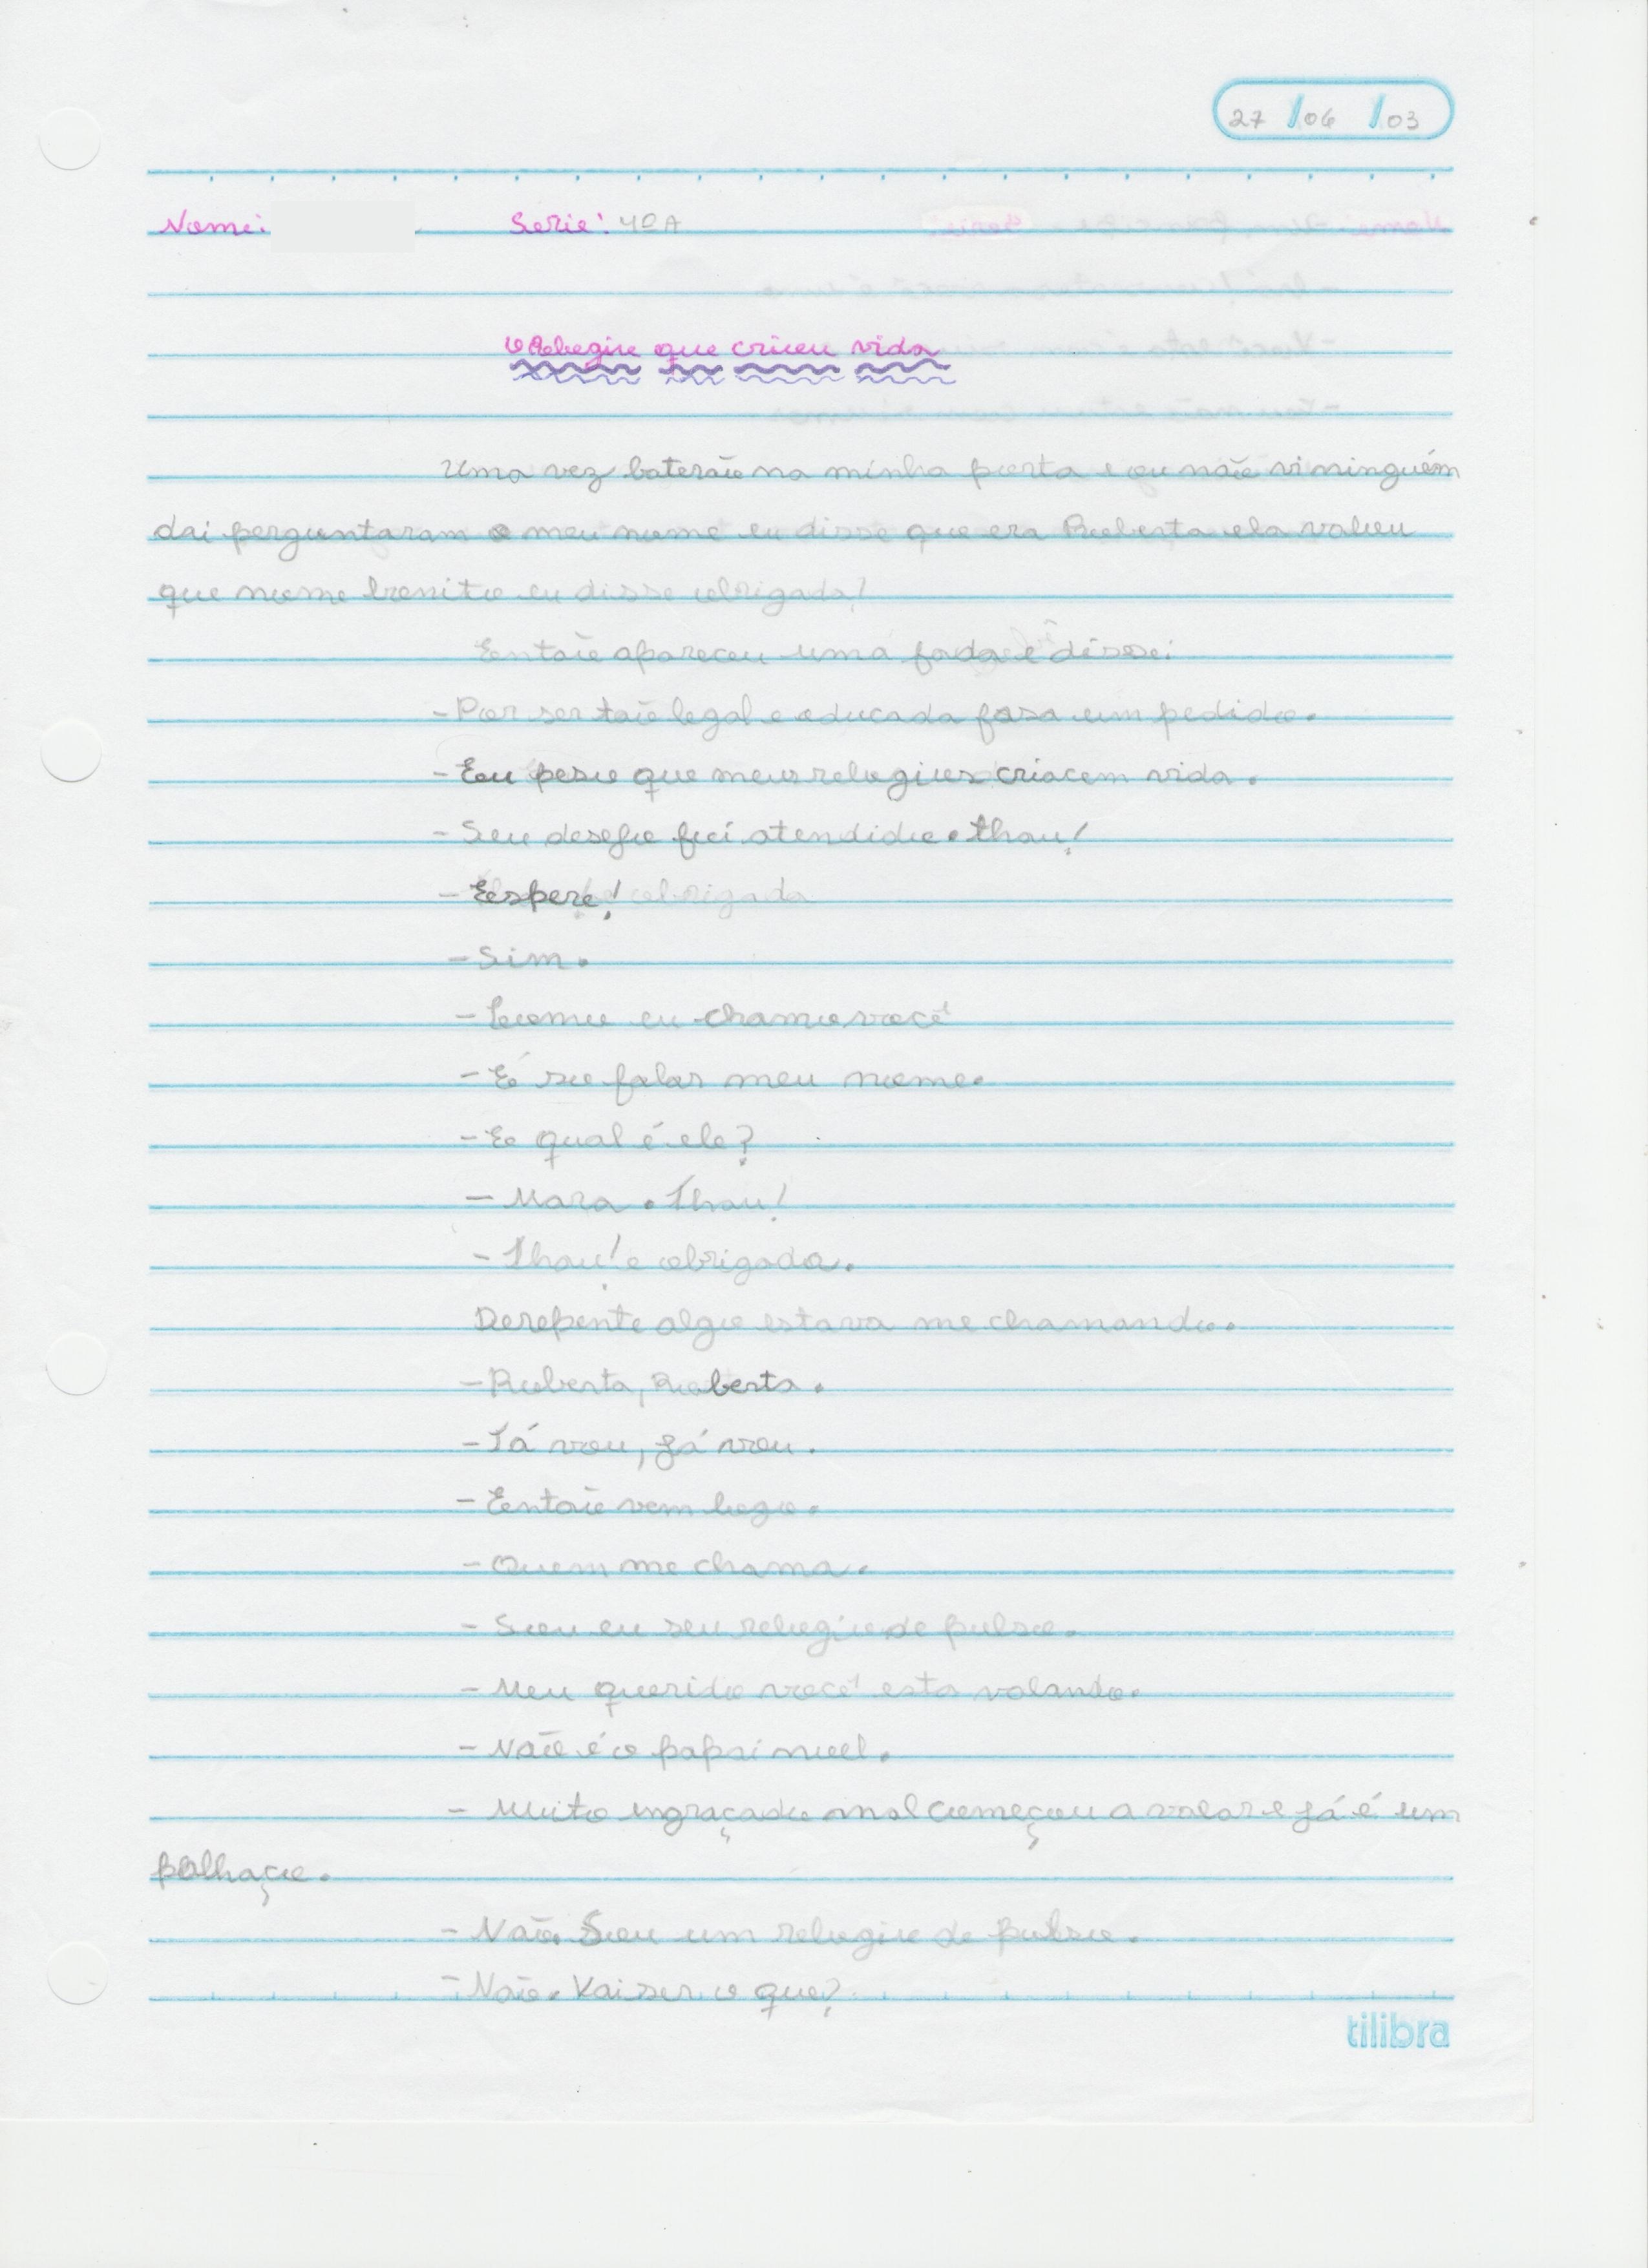 27/06/03
Nome: Serie: 4ªA
O Relogio que criou vida
Uma vez baterão na minha porta e eu não vi ninguém
dai perguntaram o meu nome eu disse que era Roberta ela valou
que nome bonito eu disse obrigada!
Então apareceu uma fada e disse:
- Por ser tão legal e educada fasa um pedido.
- Eu peso que meus relogios criacem vida.
- Seu desejo foi atendido. thau!
- Espere!
- Sim.
- Como eu chamo você
- É so falar meu nome.
- E qual é ele?
- Mara. Thau!
- Thau! e obrigada.
Derepente algo estava me chamando.
- Roberta, Roberta.
- Já vou, já vou.
- Então vem logo.
- Quem me chama.
- Sou eu seu relogio de pulso.
- Meu querido você esta valando.
- Não é o papai noel.
- Muito ingraçado mal começou a valar e já é um
palhaço.
- Não. Sou um relogio de pulso.
- Não. Vai ser o que?
tilibra